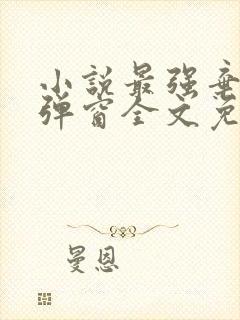 小说最强弃
弹窗全文免
曼恩